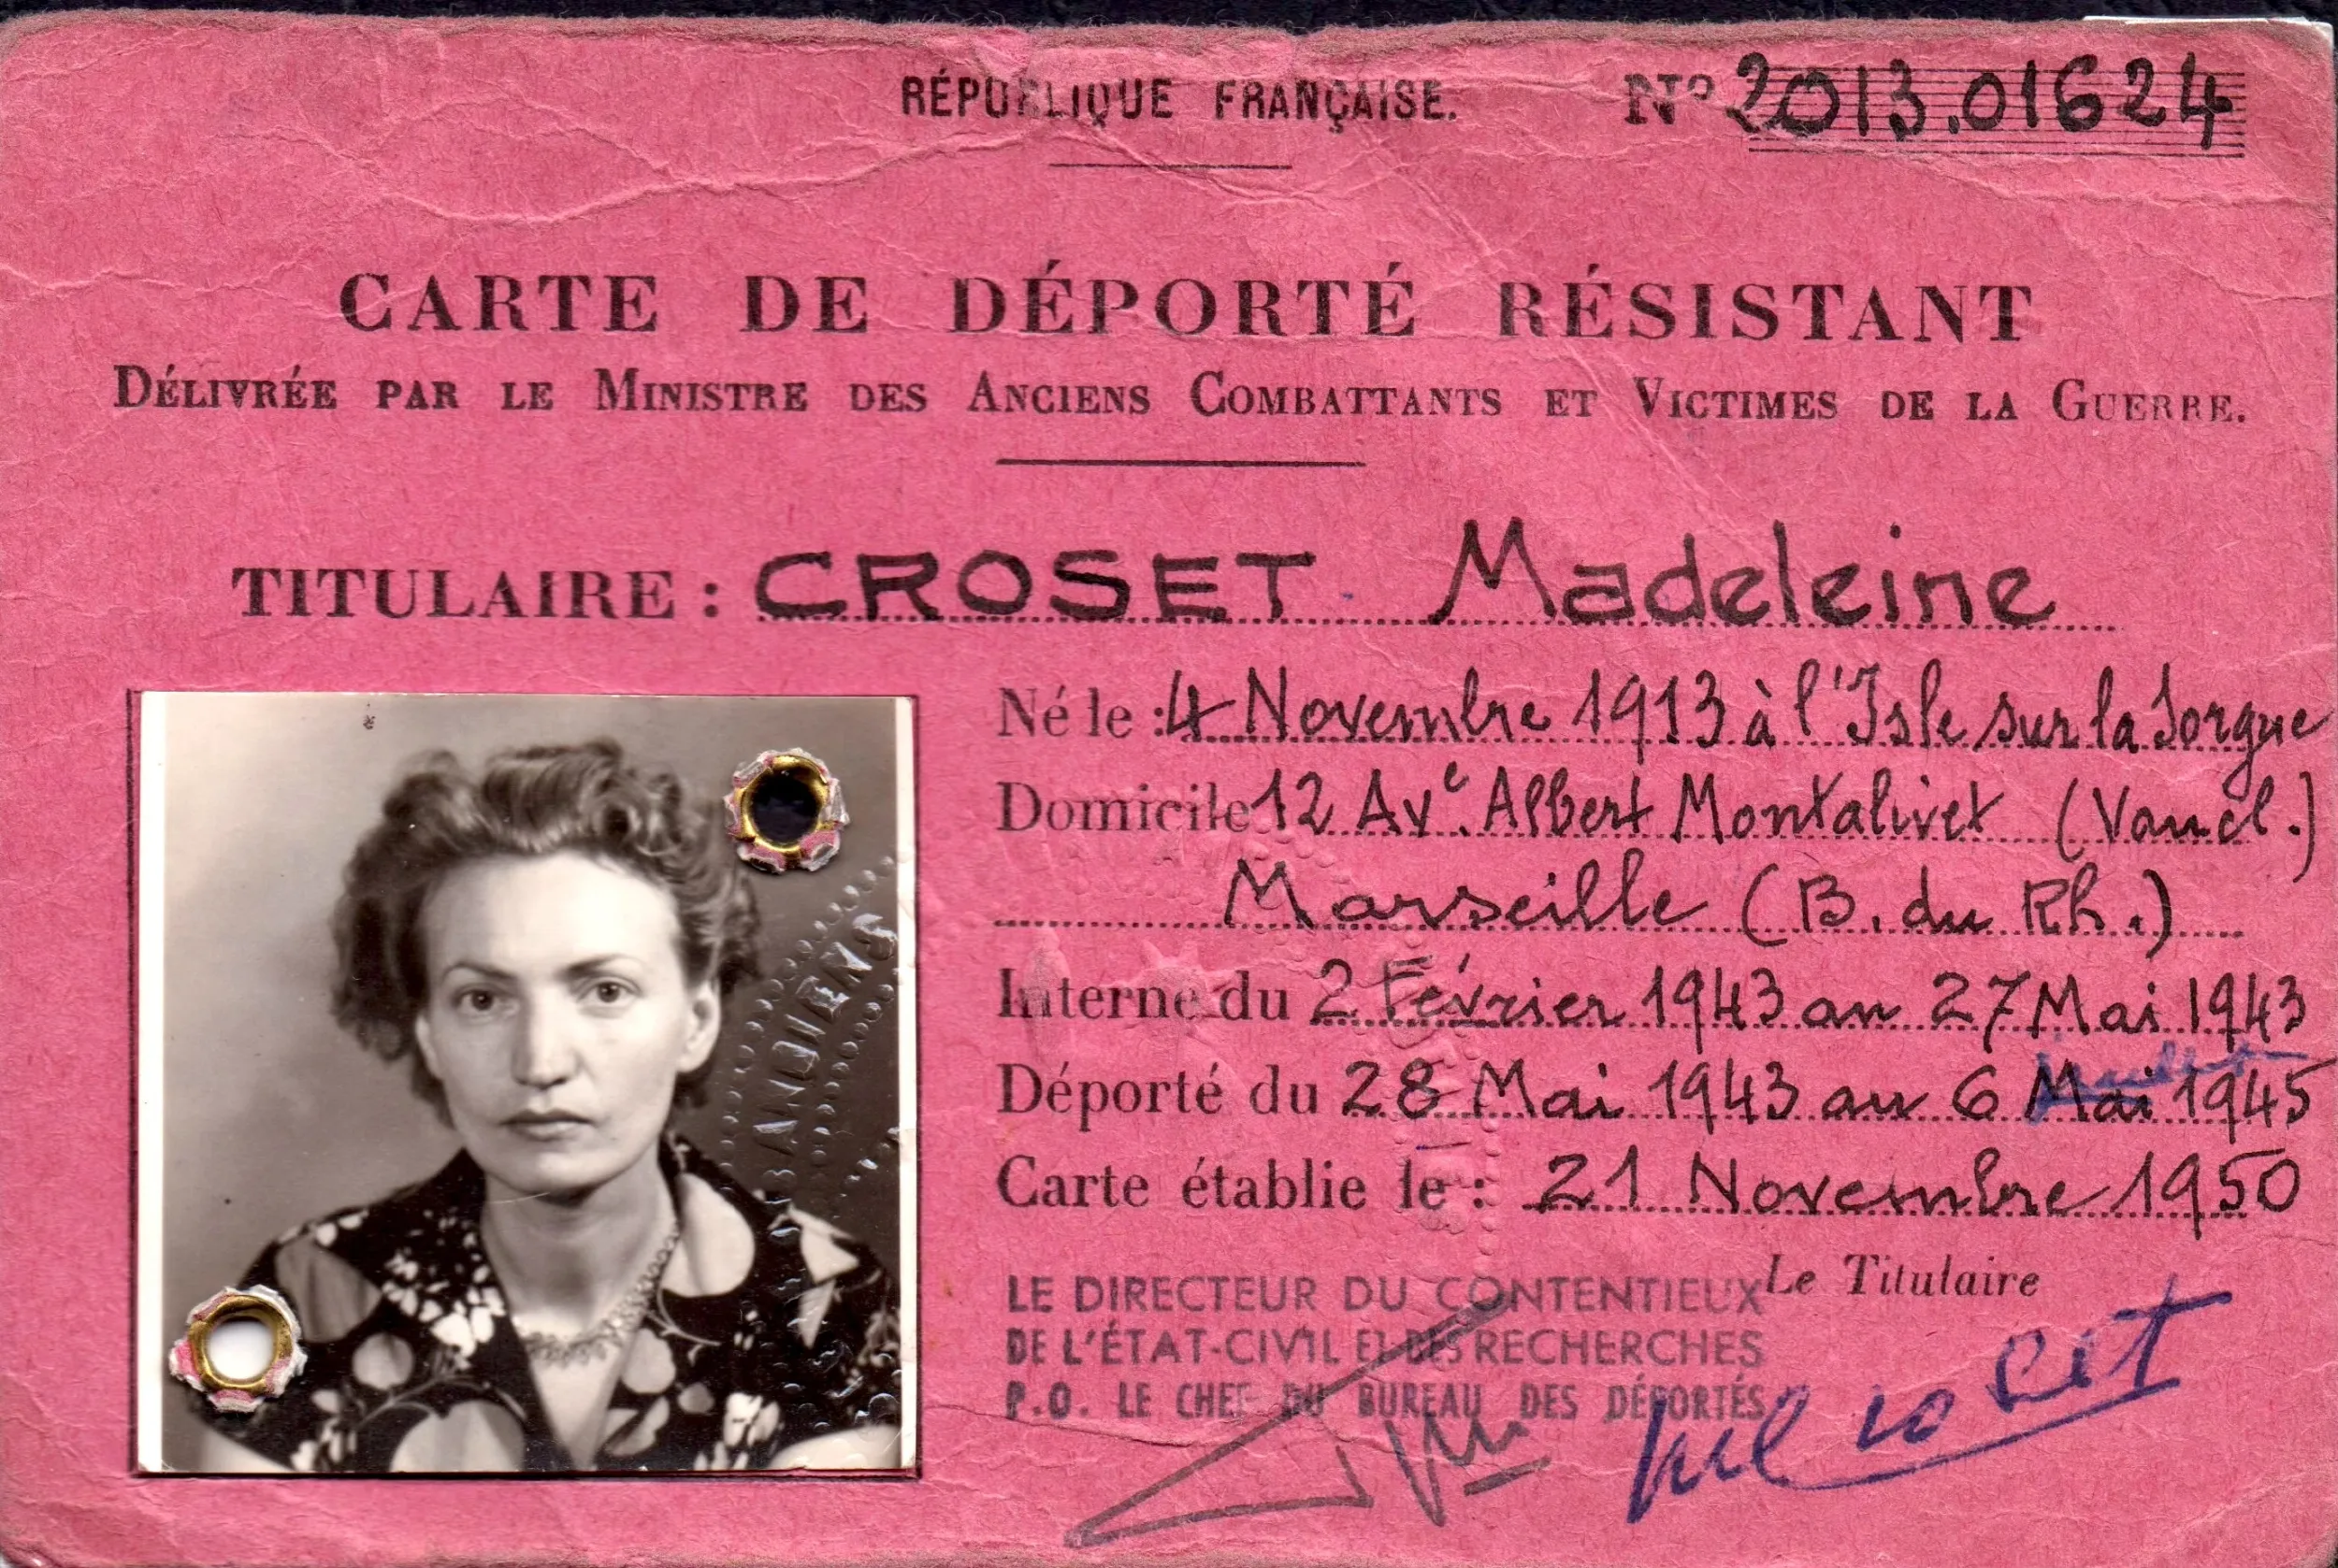 RÉPUBLIQUE FRANÇAISE. N° 2013.01624
CARTE DE DÉPORTÉ RÉSISTANT
DÉLIVRÉE PAR LE MINISTRE DES ANCIENS COMBATTANTS ET VICTIMES DE LA GUERRE.
TITULAIRE : CROSET Madeleine
Né le : 4 Novembre 1913 à l'Isle sur la Sorgue
Domicile 12 Avᵉ. Albert Montalivet (Vaucl.)
Marseille (B. du Rh.)
Interné du 2 Février 1943 au 27 Mai 1943
juillet
Déporté du 28 Mai 1943 au 6 Mai 1945
Carte établie le : 21 Novembre 1950
Le Titulaire
LE DIRECTEUR DU CONTENTIEUX
DE L'ÉTAT-CIVIL ET DES RECHERCHES
P.O. LE CHEF DU BUREAU DES DÉPORTÉS